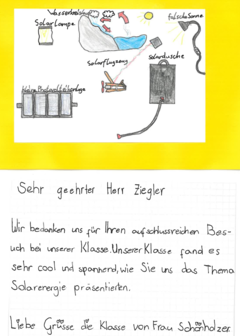 Wasserkreislauf
Solar Lampe
falsche Sonne
Solarflugzeug
Solardusche
Sehr geehrter Herr Ziegler
Wir bedanken uns für Ihren aufschlussreichen Bes-
uch bei unserer Klasse. Unserer Klasse fand es
sehr cool und spannend, wie Sie uns das Thema
Solarenergie präsentierten.
Liebe Grüsse die Klasse von Frau Schönholzer